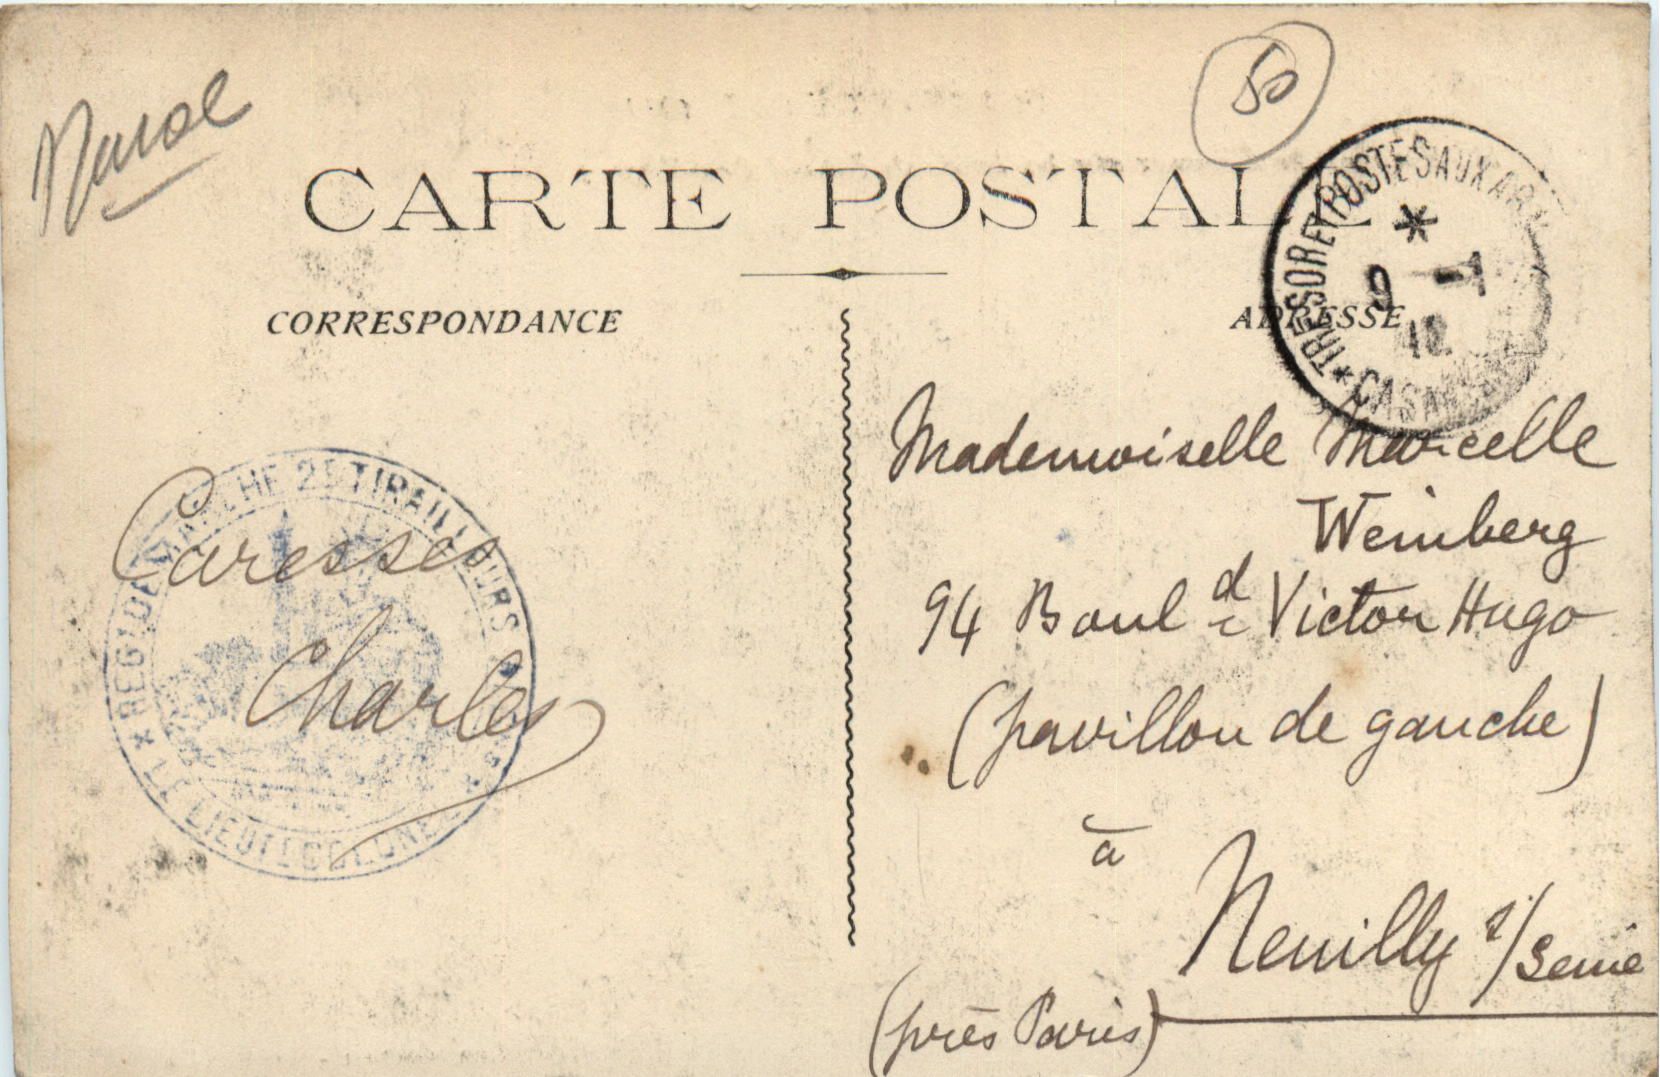 Maroc
50
CARTE POSTALE
CORRESPONDANCE
ADRESSE
* TRESOR ET POSTES AUX ARM
*
9 -1
CASA
Mademoiselle Marcelle
Weinberg
94 Boul d Victor Hugo
(pavillon de gauche)
à
Neuilly s/Seine
(près Paris)
Caresses
Charles
* REGT DE MARCHE 2E TIRAILLEURS
LE LIEUT COLONEL